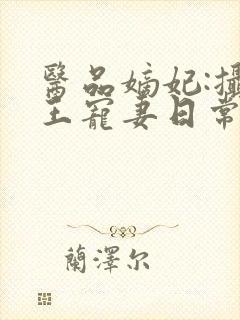 醫品嫡妃:攝
王寵妻日常
蘭澤尔